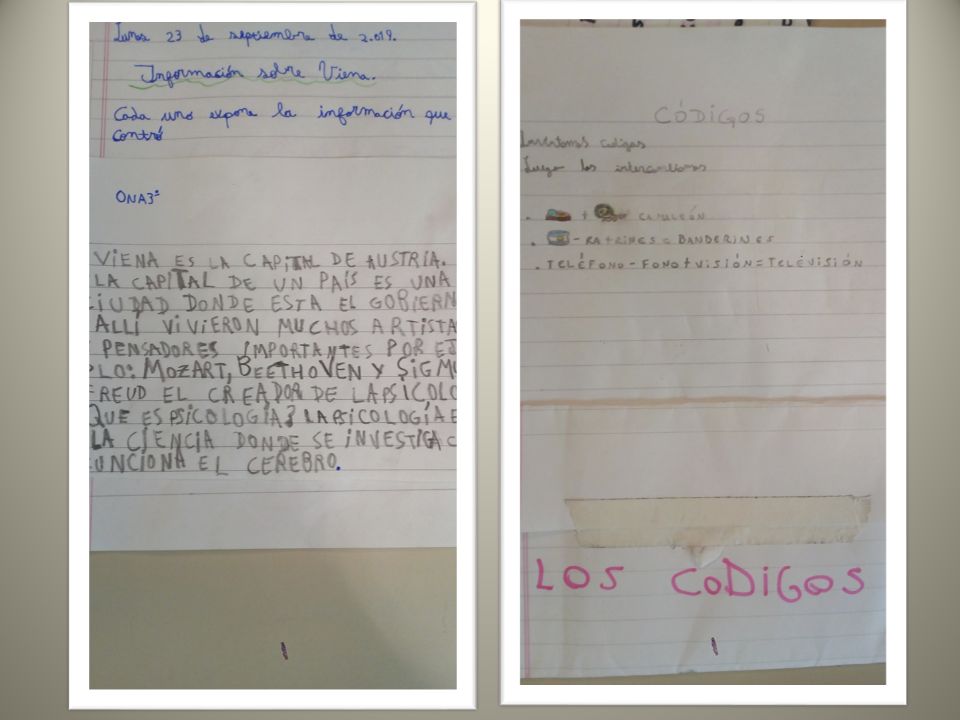 Lunes 23 de septiembre de 2.019.
Información sobre Viena.
Cada uno expone la información que
contró
ONA 3º
VIENA ES LA CAPITAL DE AUSTRIA.
LA CAPITAL DE UN PAÍS ES UNA
CIUDAD DONDE ESTA EL GOBIERN
ALLÍ VIVIERON MUCHOS ARTISTA
PENSADORES IMPORTANTES POR EJ
PLO: MOZART, BEETHOVEN Y SIGMU
FREUD EL CREADOR DE LA PSICOLO
QUE ES PSICOLOGÍA? LA PSICOLOGÍA E
LA CIENCIA DONDE SE INVESTIGA C
UNCIONA EL CEREBRO.
CÓDIGOS
Inventamos codigos
Luego los intercambiamos
. + CAMALEÓN
. - RA + RINES = BANDERINES
. TELÉFONO - FONO + VISIÓN = TELEVISIÓN
LOS CODIGOS